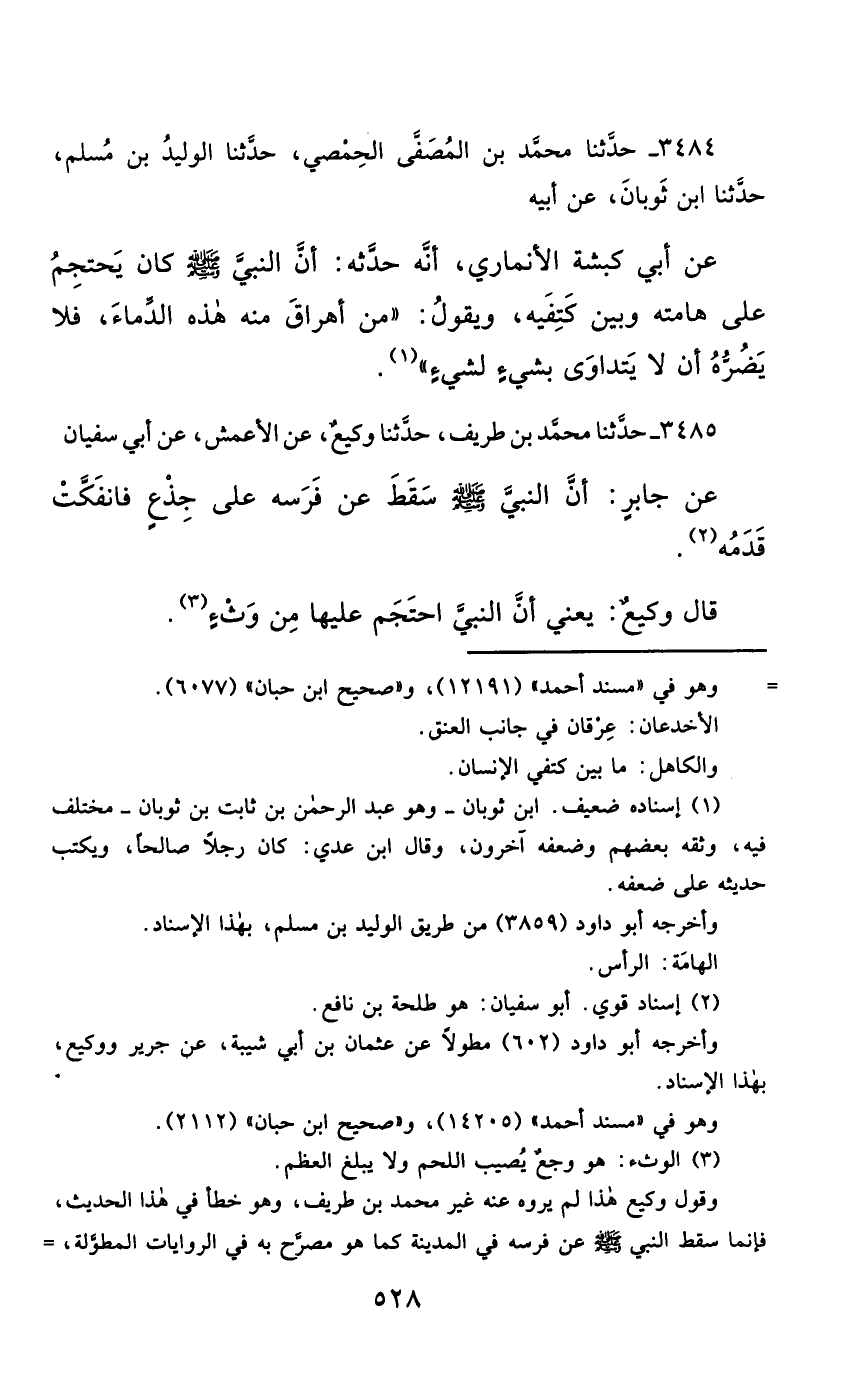 ٣٤٨٤ـ حدَّثنا محمَّد بن المُصَفَّى الحِمْصي، حدَّثنا الوليدُ بن مُسلم،
حدَّثنا ابن ثَوبانَ، عن أبيه
عن أبي كبشة الأنماري، أنَّه حدَّثه: أنَّ النبيَّ ﷺ كان يَحتجِمُ
على هامته وبين كَتِفَيه، ويقولُ: «من أهراقَ منه هٰذه الدِّماءَ، فلا
يَضُرُّهُ أن لا يَتداوَى بشيءٍ لشيءٍ»(١).
٣٤٨٥ـ حدَّثنا محمَّد بن طريف، حدَّثنا وكيعٌ، عن الأعمش، عن أبي سفيان
عن جابرٍ: أنَّ النبيَّ ﷺ سَقَطَ عن فَرَسه على جِذْعٍ فانفَكَّتْ
قَدَمُه(٢).
قال وكيعٌ: يعني أنَّ النبيَّ احتَجَم عليها مِن وَثْءٍ(٣).
= وهو في «مسند أحمد» (١٢١٩١)، و«صحيح ابن حبان» (٦٠٧٧).
الأخدعان: عِرْقان في جانب العنق.
والكاهل: ما بين كتفي الإنسان.
(١) إسناده ضعيف. ابن ثوبان ـ وهو عبد الرحمٰن بن ثابت بن ثوبان ـ مختلف
فيه، وثقه بعضهم وضعفه آخرون، وقال ابن عدي: كان رجلاً صالحاً، ويكتب
حديثه على ضعفه.
وأخرجه أبو داود (٣٨٥٩) من طريق الوليد بن مسلم، بهٰذا الإسناد.
الهامَة: الرأس.
(٢) إسناد قوي. أبو سفيان: هو طلحة بن نافع.
وأخرجه أبو داود (٦٠٢) مطولاً عن عثمان بن أبي شيبة، عن جرير ووكيع،
بهٰذا الإسناد.
وهو في «مسند أحمد» (١٤٢٠٥)، و«صحيح ابن حبان» (٢١١٢).
(٣) الوثء: هو وجعٌ يُصيب اللحم ولا يبلغ العظم.
وقول وكيع هٰذا لم يروه عنه غير محمد بن طريف، وهو خطأ في هٰذا الحديث،
فإنما سقط النبي ﷺ عن فرسه في المدينة كما هو مصرَّح به في الروايات المطوَّلة، =
٥٢٨